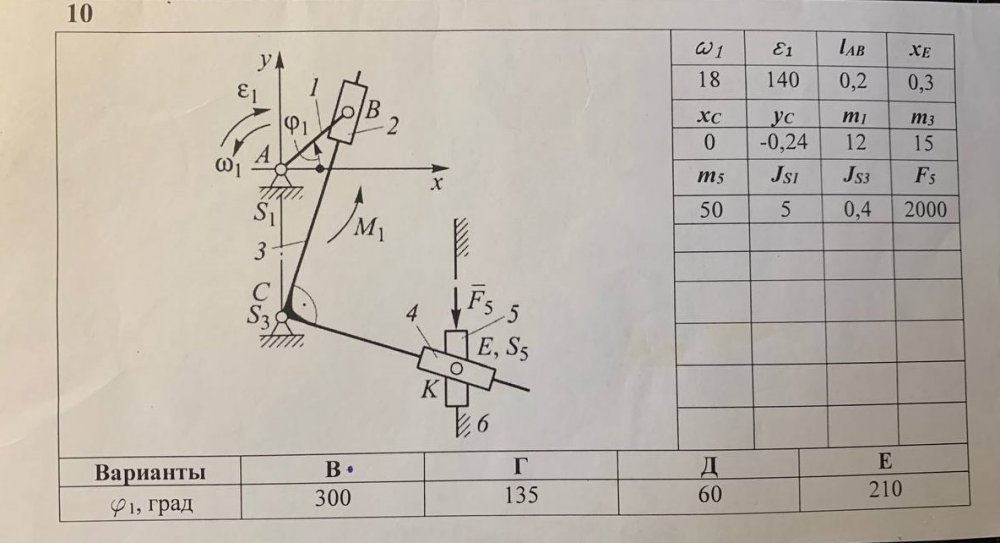 10
y
ε1
1
φ1
B
2
A
ω1
x
S1
M1
3
C
S3
F̅5
4
5
E, S5
K
6
ω1 ε1 lAB xE
18 140 0,2 0,3
xC yC m1 m3
0 -0,24 12 15
m5 JS1 JS3 F5
50 5 0,4 2000
Варианты В Г Д Е
φ1, град 300 135 60 210